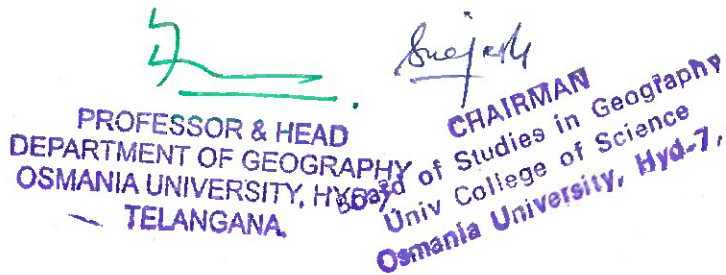 PROFESSOR & HEAD
DEPARTMENT OF GEOGRAPHY
OSMANIA UNIVERSITY,
TELANGANA.
CHAIRMAN
Board of Studies in Geography
Univ College of Science
Osmania University, Hyd-7,